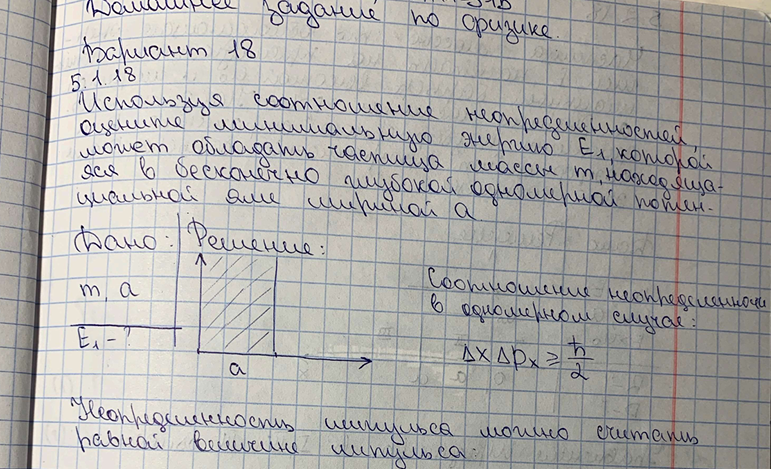 Домашнее задание по физике.
Вариант 18
5.1.18
Используя соотношение неопределенностей,
оцените минимальную энергию E₁, которой
может обладать частица массы m, находяща-
яся в бесконечно глубокой одномерной потен-
циальной яме шириной a
Дано: Решение:
m, a
E₁ - ?
a
Соотношение неопределенночи
в одномерном случае:
Δx Δpₓ ≥ ħ/2
Неопределенность импульса можно считать
равной величине импульса: